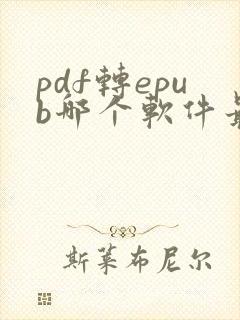 pdf轉epu
b哪个軟件
斯莱布尼尔